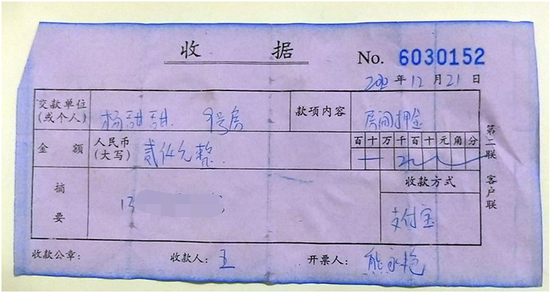 收 据 No. 6030152
年 12 月 21 日
交款单位 (或个人) 杨甜甜 9号房 款项内容 房间押金
金 额 人民币 (大写) 贰仟元整 百十万千百十元角分
摘要 收款方式
支付宝
收款公章： 收款人： 王 开票人：
第二联 客户联